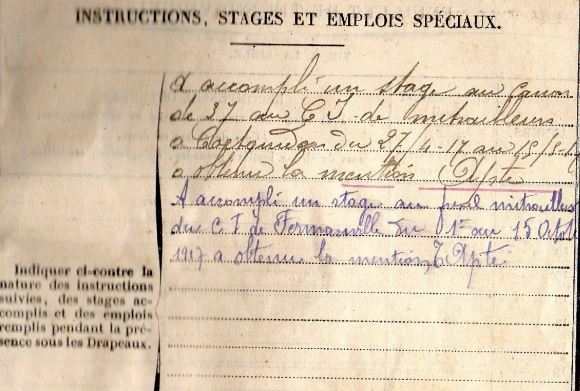 INSTRUCTIONS, STAGES ET EMPLOIS SPÉCIAUX.
A accompli un stage au canon
de 37 au C I de mitrailleurs
a Coetquidan du 27/4-17 au 15/5-17
a obtenu la mention Apte
A accompli un stage au fusil mitrailleur
du C I de Fermanville du 1er au 15 Octob
1917 a obtenu la mention, T Apte
Indiquer ci-contre la
nature des instructions
suivies, des stages ac-
complis et des emplois
remplis pendant la pré-
sence sous les Drapeaux.